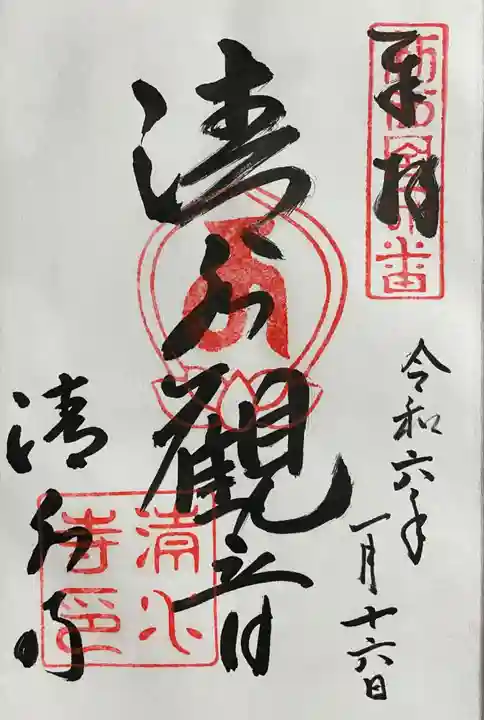 奉拝
令和六年
一月十六日
清水観音
清水寺
清水寺印